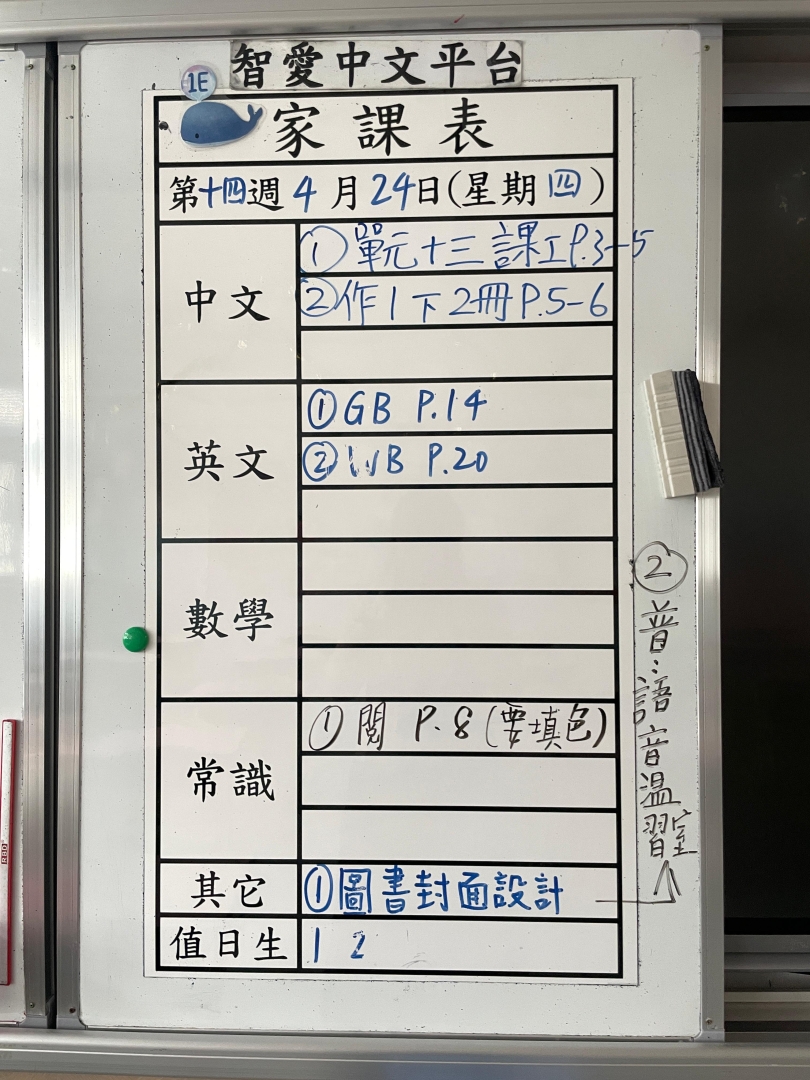 智愛中文平台
1E
家課表
第十四週 4月24日(星期四)
中文
①單元十三課工P.3-5
②作1下2冊P.5-6
英文
①GB P.14
②WB P.20
數學
常識
①閱 P.8(要填色)
其它
①圖書封面設計
②普:語音溫習室
值日生
1 2